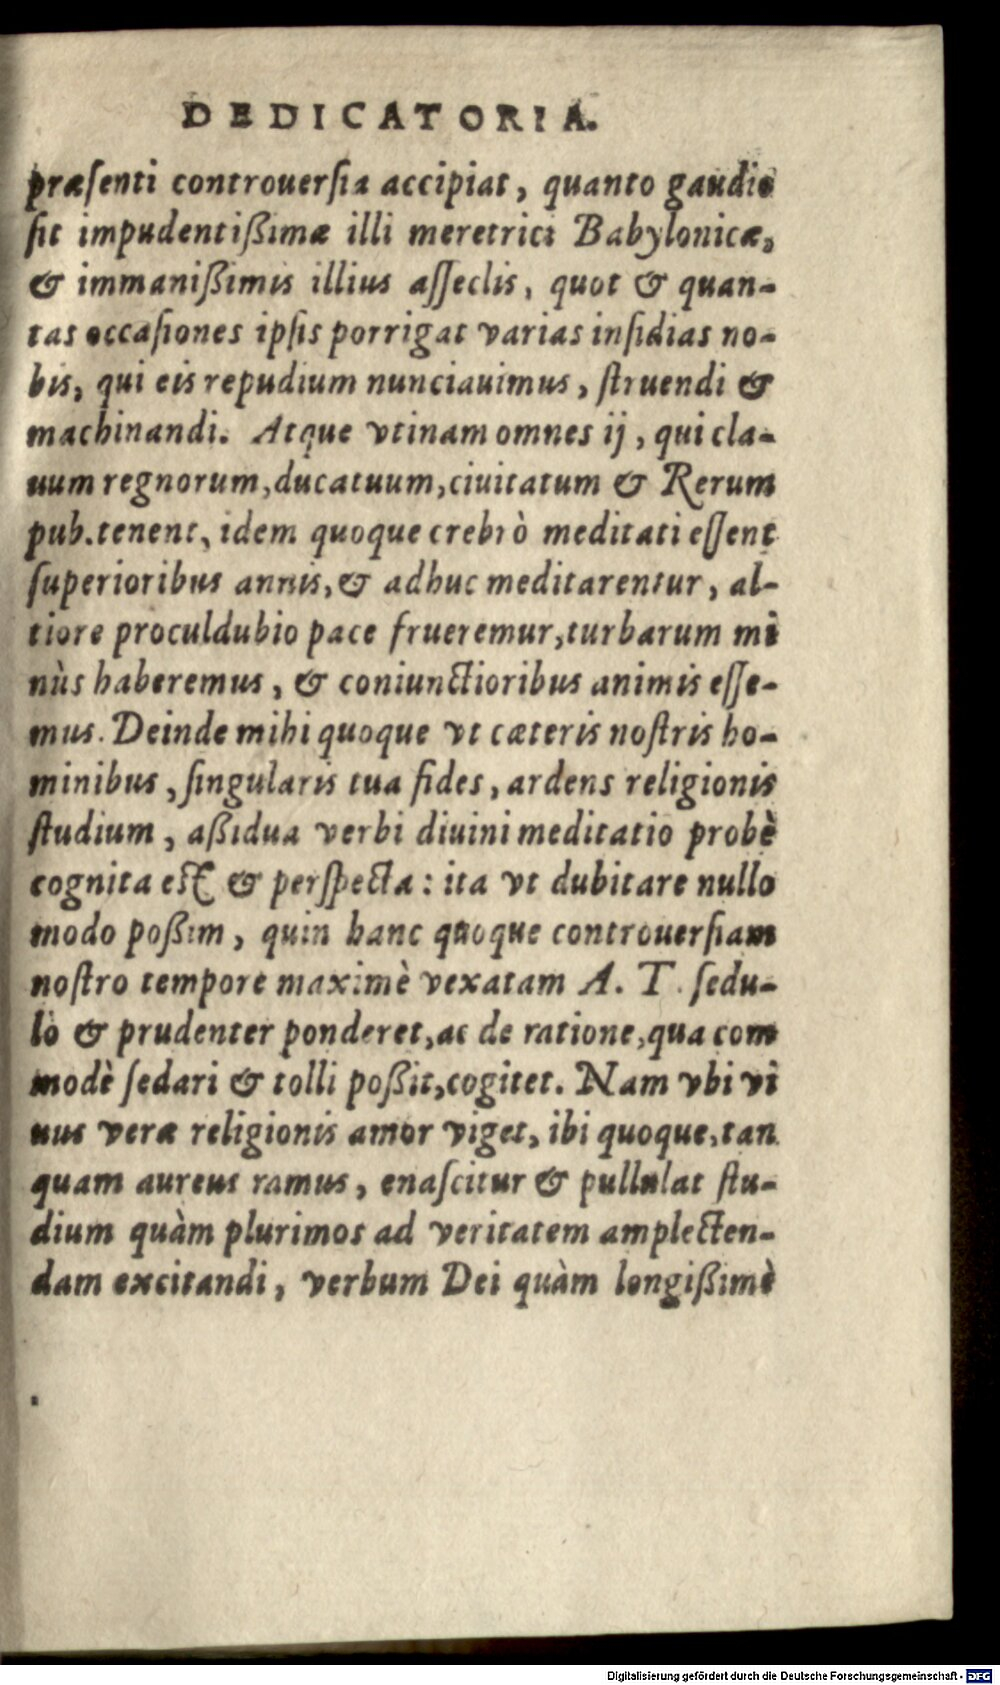 DEDICATORIA.
præſenti controuerſia accipiat, quanto gaudio
ſit impudentißimæ illi meretrici Babylonicæ,
& immanißimis illius aſſeclis, quot & quan-
tas occaſiones ipſis porrigat varias inſidias no-
bis, qui eis repudium nunciauimus, ſtruendi &
machinandi. Atque vtinam omnes ij, qui cla-
uum regnorum, ducatuum, ciuitatum & Rerum
pub. tenent, idem quoque crebrò meditati eſſent
ſuperioribus annis, & adhuc meditarentur, al-
tiore proculdubio pace frueremur, turbarum mi
nùs haberemus, & coniunctioribus animis eſſe-
mus. Deinde mihi quoque vt cæteris noſtris ho-
minibus, ſingularis tua fides, ardens religionis
ſtudium, aßidua verbi diuini meditatio probè
cognita eſt & perſpecta: ita vt dubitare nullo
modo poßim, quin hanc quoque controuerſiam
noſtro tempore maximè vexatam A. T. ſedu-
lò & prudenter ponderet, ac de ratione, qua com
modè ſedari & tolli poßit, cogitet. Nam vbi vi
uus veræ religionis amor viget, ibi quoque, tan
quam aureus ramus, enaſcitur & pullulat ſtu-
dium quàm plurimos ad veritatem amplecten-
dam excitandi, verbum Dei quàm longißimè
Digitalisierung gefördert durch die Deutsche Forschungsgemeinschaft - DFG